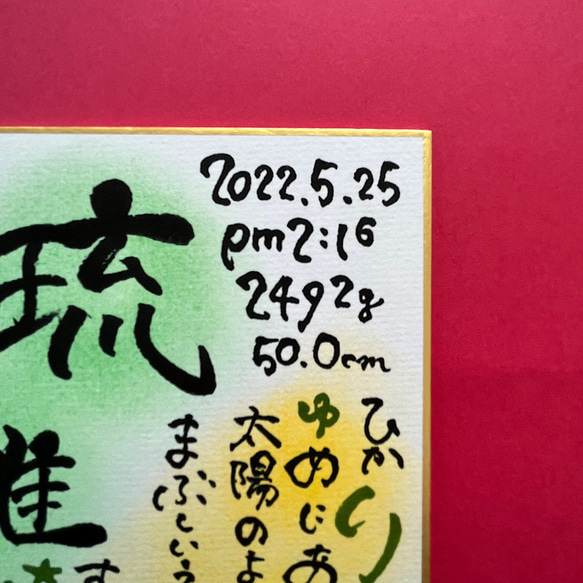 2022.5.25
pm2:16
2492g
50.0cm
ひかり
ゆめにあ
太陽のよ
まぶしいう
す
琉